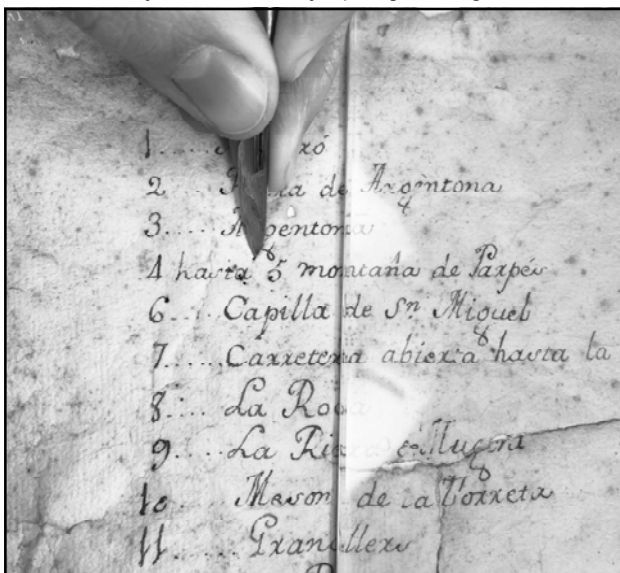 1.....
2 Riera de Argentona
3.... Argentona
4 hasta 5 montaña de Parpés
6... Capilla de Sn Miguel
7..... Carretera abierta hasta la
8.... La Roca
9.... La Riera
10 Meson de la Torreta
11..... Granollers